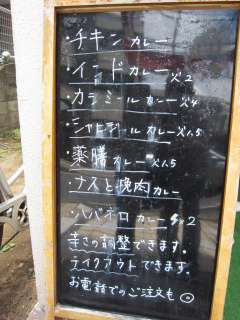 ・チキンカレー
・イードカレー火2
・カラミールカレー火4
・シャヒジールカレー火1.5
・薬膳カレー火1.5
・ナスと挽肉カレー
・ハバネロカレー 2
辛さの調整できます。
テイクアウトできます。
お電話でのご注文も◎